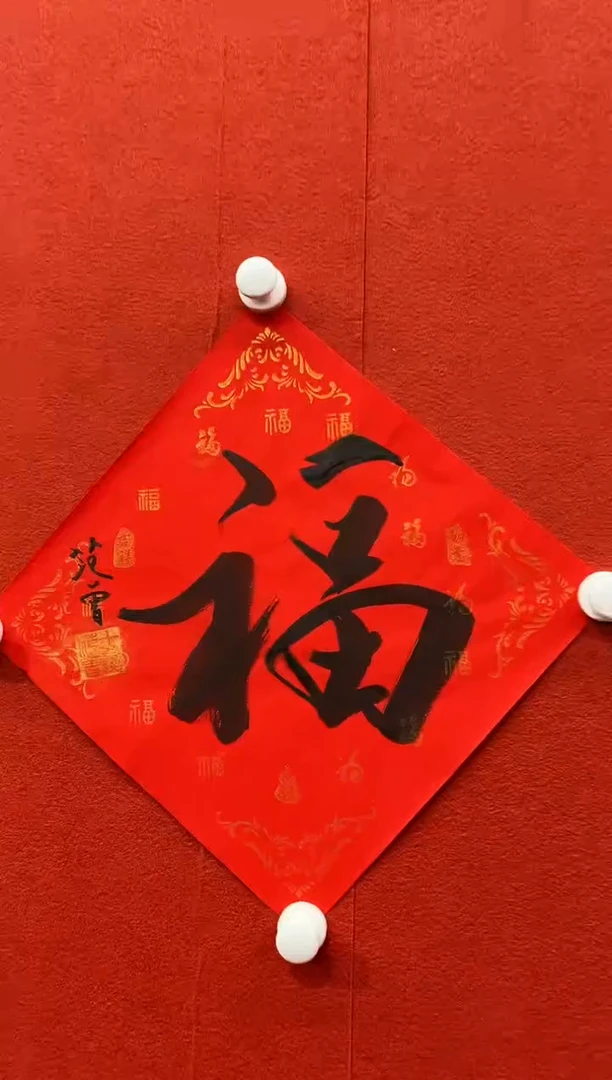 福
范曾
福
福
福
福
福
福
福
福
福
福
福